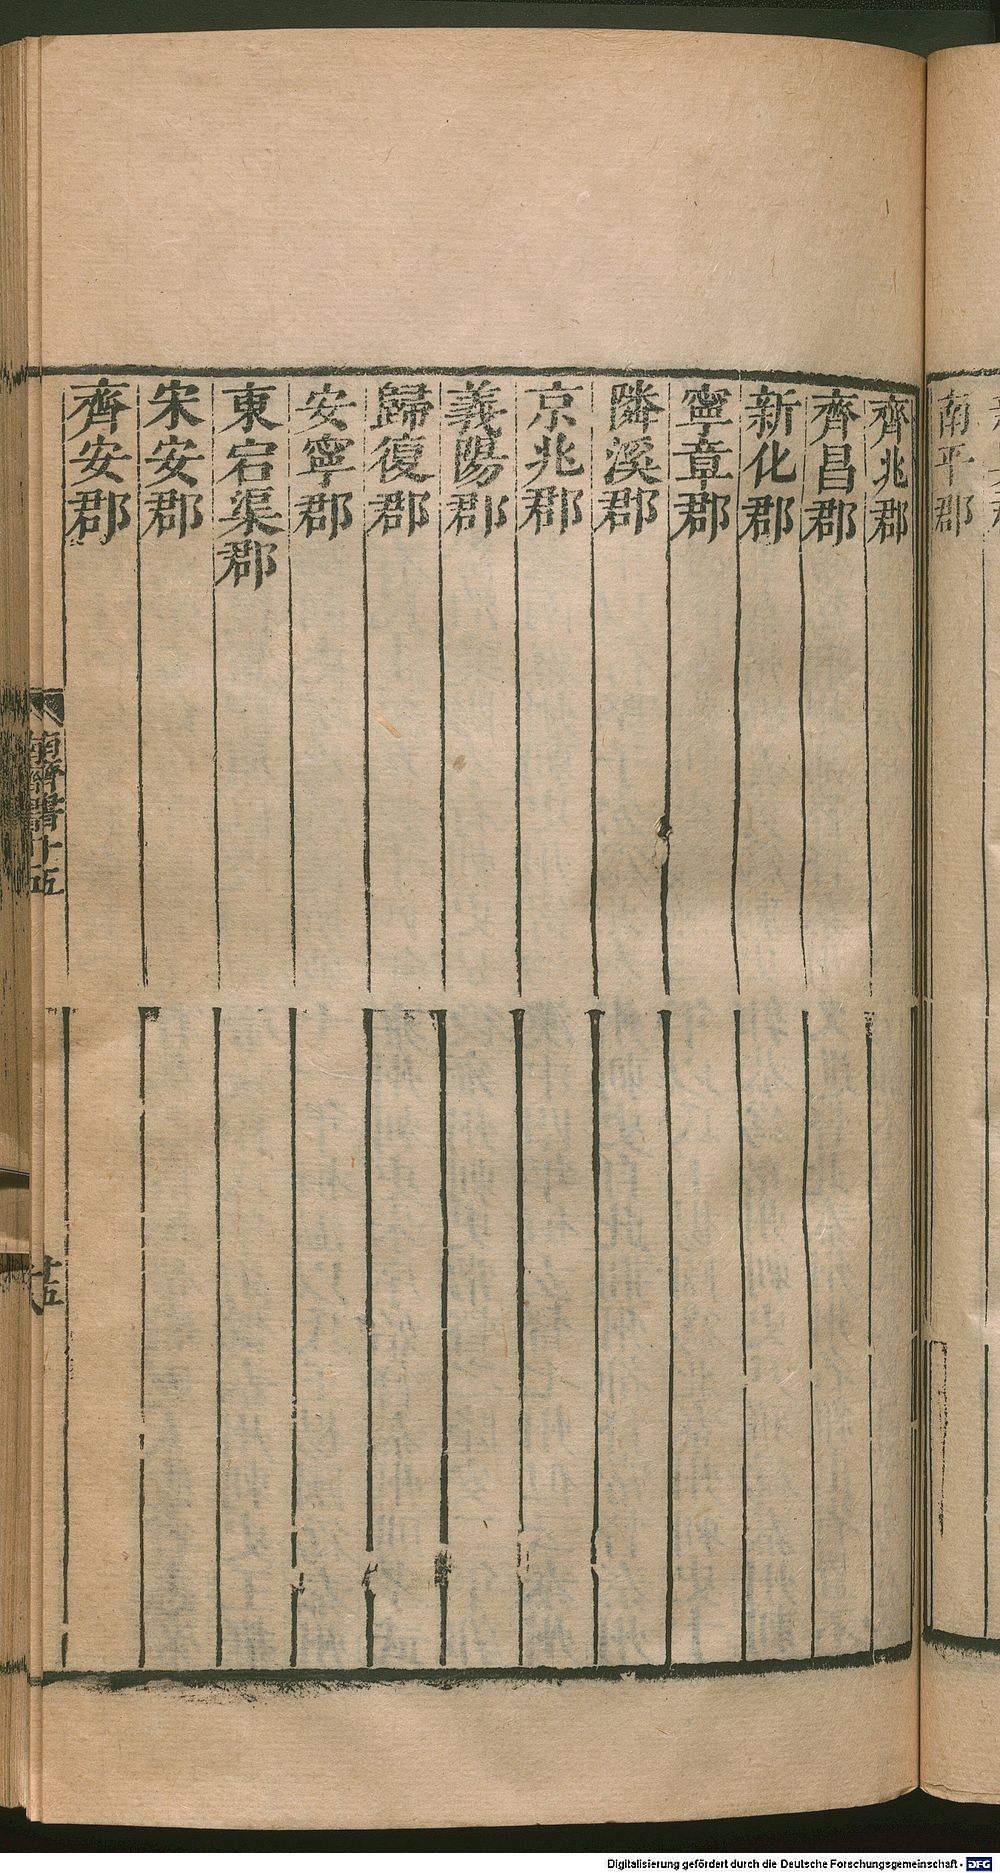 南平郡
齊兆郡
齊昌郡
新化郡
寧章郡
隣溪郡
京兆郡
義陽郡
歸復郡
安寧郡
東宕渠郡
宋安郡
齊安郡
南齊書十五
十五
Digitalisierung gefördert durch die Deutsche Forschungsgemeinschaft - DFG